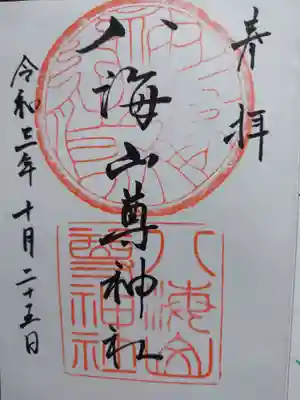 奉拝
八海山尊神社
令和三年十月二十五日
八海山
尊神社